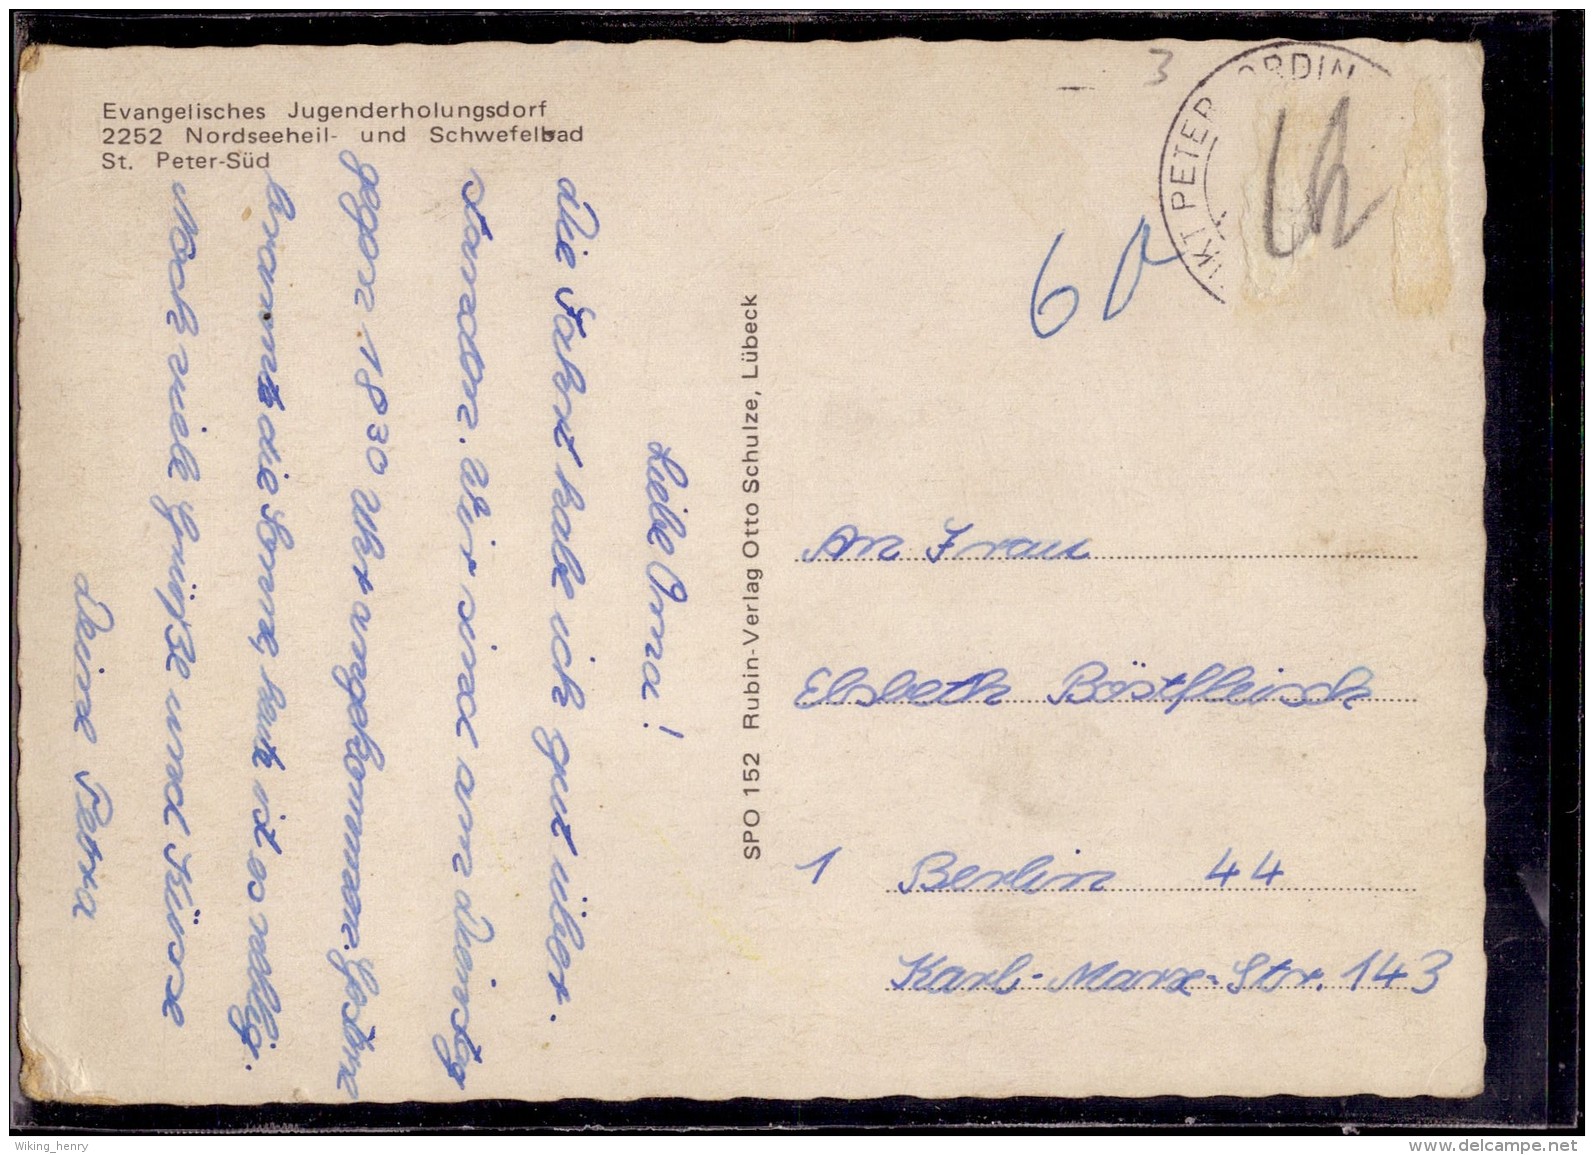 Evangelisches Jugenderholungsdorf
2252 Nordseeheil- und Schwefelbad
St. Peter-Süd
Liebe Oma!
Die Fahrt habe ich gut über-
standen. Wir sind am Dienstg
gegen 18 30 Uhr angekommen. Gestern
brannte die Sonne, heute ist es nellig.
Noch viele Grüße und Küsse
Deine Petra
SPO 152 Rubin-Verlag Otto Schulze, Lübeck
3
NKT PETER ORDIN
60
An Frau
Elsbeth Böstfleisch
1 Berlin 44
Karl-Marx-Str. 143
Wiking_henry
www.delcampe.net